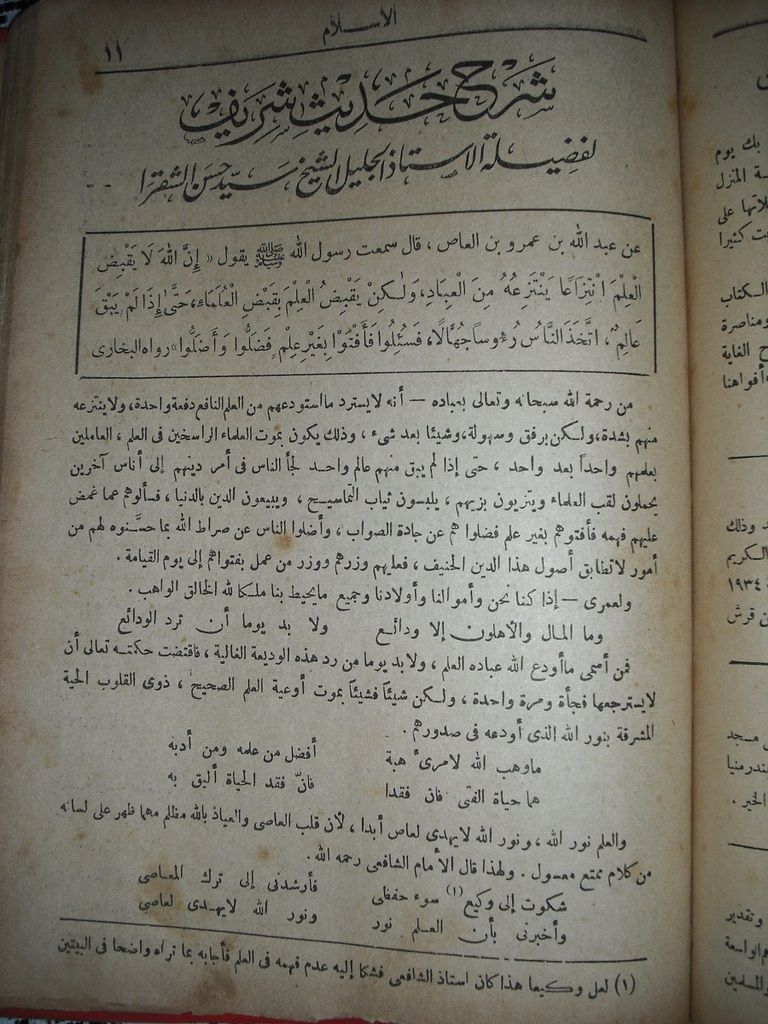 الاسلام
١١
شرح حديث شريف
لفضيلة الاستاذ الجليل الشيخ سيد حسن الشقرا
عن عبد الله بن عمرو بن العاص ، قال سمعت رسول الله ﷺ يقول « إِنَّ اللهَ لَا يَقْبِضُ
الْعِلْمَ انْتِزَاعًا يَنْتَزِعُهُ مِنَ الْعِبَادِ، وَلٰكِنْ يَقْبِضُ الْعِلْمَ بِقَبْضِ الْعُلَمَاءِ، حَتَّى إِذَا لَمْ يَبْقَ
عَالِمٌ ، اتَّخَذَ النَّاسُ رُءُوسًا جُهَّالًا، فَسُئِلُوا فَأَفْتَوْا بِغَيْرِ عِلْمٍ فَضَلُّوا وَأَضَلُّوا» رواه البخارى
من رحمة الله سبحانه وتعالى بعباده — أنه لا يسترد ما استودعهم من العلم النافع دفعة واحدة، ولا ينتزعه
منهم بشدة، ولكن برفق وسهولة، وشيئا بعد شىء ، وذلك يكون بموت العلماء الراسخين فى العلم ، العاملين
بعلمهم واحداً بعد واحد ، حتى إذا لم يبق منهم عالم واحد لجأ الناس فى أمر دينهم إلى أناس آخرين
يحملون لقب العلماء ويتزيون بزيهم ، يلبسون ثياب التماسيح ، ويبيعون الدين بالدنيا ، فسألوهم عما غمض
عليهم فهمه فأفتوهم بغير علم فضلوا هم عن جادة الصواب ، وأضلوا الناس عن صراط الله بما حسَّنوه لهم من
أمور لا تطابق أصول هذا الدين الحنيف ، فعليهم وزرهم ووزر من عمل بفتواهم إلى يوم القيامة .
ولعمرى — إذا كنا نحن وأموالنا وأولادنا وجميع مايحيط بنا ملكا لله الخالق الواهب .
وما المال والأهلون إلا ودائع ولا بد يوما أن ترد الودائع
فمن أسمى ما أودع الله عباده العلم ، ولا بد يوما من رد هذه الوديعة الغالية ، فاقتضت حكمته تعالى أن
لا يسترجعها فجأة ومرة واحدة ، ولكن شيئاً فشيئاً بموت أوعية العلم الصحيح ، ذوى القلوب الحية
المشرقة بنور الله الذى أودعه فى صدورهم .
ماوهب الله لامرىء هبة أفضل من علمه ومن أدبه
هما حياة الفتى فان فقدا فانّ فقد الحياة أليق به
والعلم نور الله ، ونور الله لايهدى لعاص أبدا ، لأن قلب العاصى والعياذ بالله مظلم مهما ظهر على لسانه
من كلام ممتع معسول . ولهذا قال الأمام الشافعى رحمه الله .
شكوت إلى وكيع (١) سوء حفظى فأرشدنى إلى ترك المعاصى
وأخبرنى بأن العلم نور ونور الله لايهدى لعاصى
(١) لعل وكيعا هذا كان استاذ الشافعى فشكا إليه عدم فهمه فى العلم فأجابه بما تراه واضحا فى البيتين
بك يوم
المنزل
على
كثيرا
الكتاب
ومناصرة
الغاية
وذلك
الكريم
١٩٣٤
قرش
مسجد
الخير .
وتقدير